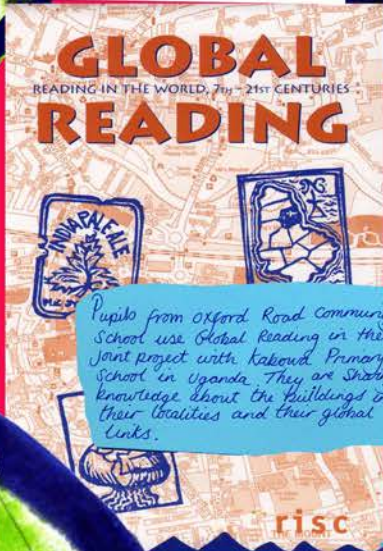 GLOBAL
READING IN THE WORLD, 7TH - 21ST CENTURIES
READING
INDIA PALE ALE
Pupils from Oxford Road Commun
School use Global Reading in the
joint project with Kakowa Primary
School in Uganda. They are Shari
knowledge about the buildings
their localities and their global
links.
risc